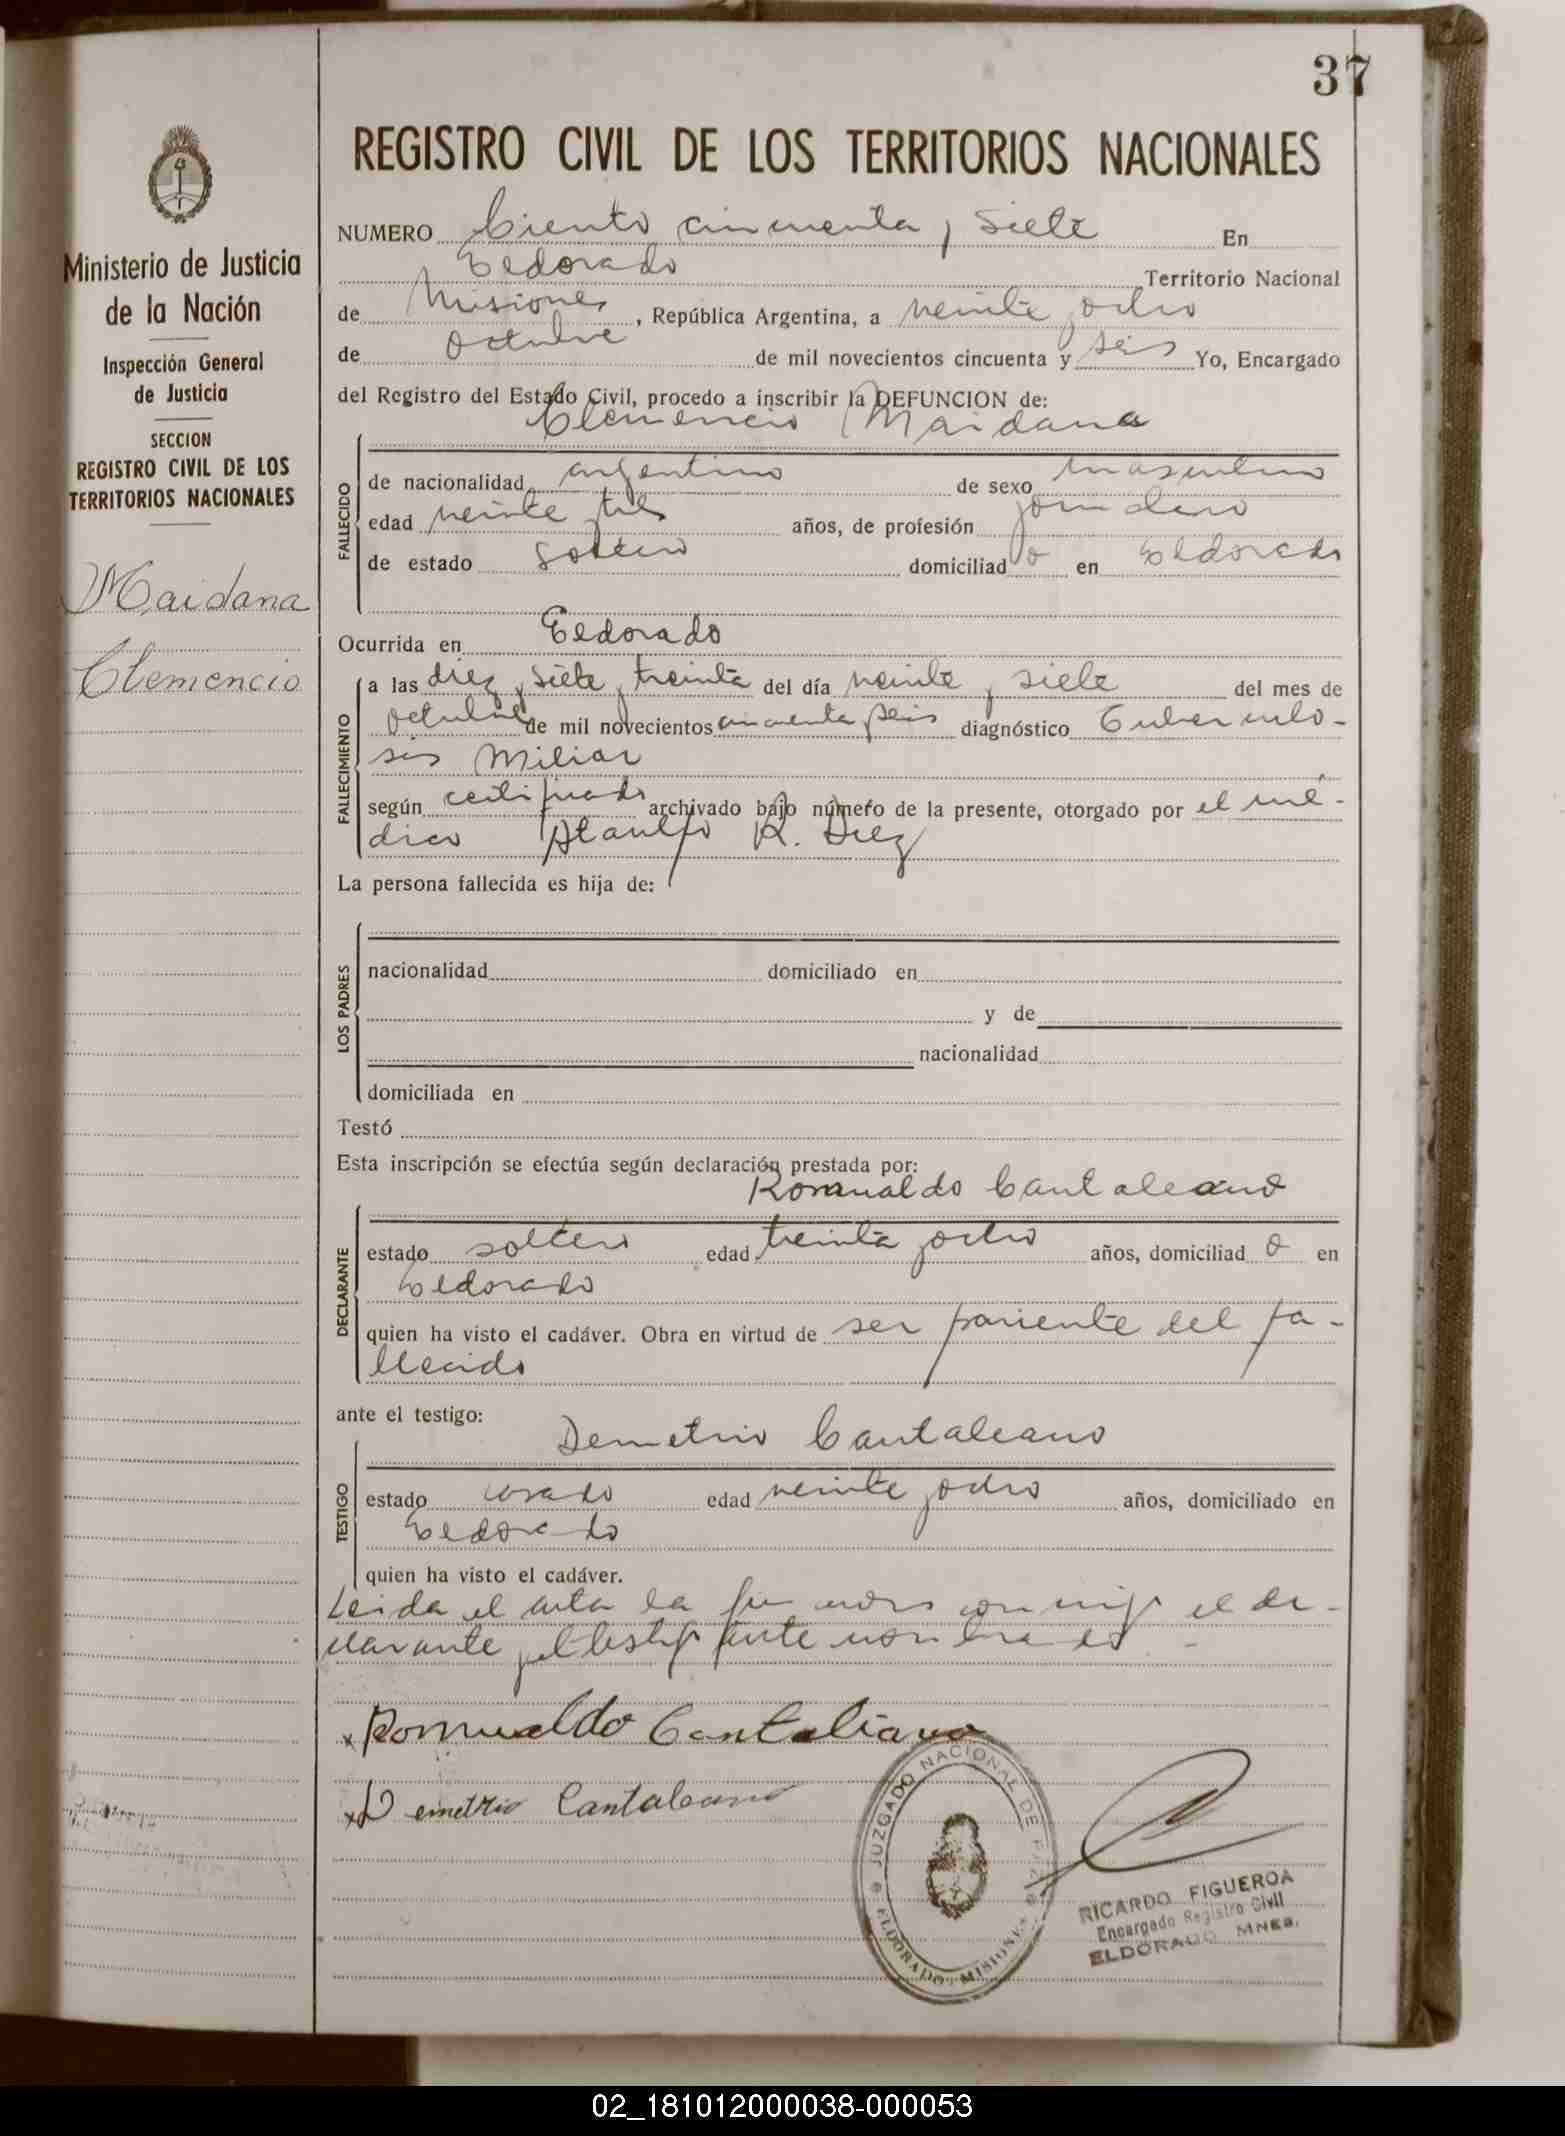 37
Ministerio de Justicia
de la Nación
Inspección General
de Justicia
SECCION
REGISTRO CIVIL DE LOS
TERRITORIOS NACIONALES
Maidana
Clemencio
REGISTRO CIVIL DE LOS TERRITORIOS NACIONALES
NUMERO Ciento cincuenta y siete En
Eldorado Territorio Nacional
de Misiones, República Argentina, a veinte y ocho
de Octubre de mil novecientos cincuenta y seis Yo, Encargado
del Registro del Estado Civil, procedo a inscribir la DEFUNCION de:
Clemencio Maidana
FALLECIDO
de nacionalidad argentino de sexo masculino
edad veinte y tres años, de profesión jornalero
de estado soltero domiciliado en Eldorado
Ocurrida en Eldorado
FALLECIMIENTO
a las diez y siete y treinta del día veinte y siete del mes de
octubre de mil novecientos cincuenta y seis diagnóstico Tuberculo-
sis Miliar
según certificado archivado bajo número de la presente, otorgado por el mé-
dico Ataulfo R. Diez
La persona fallecida es hija de:
LOS PADRES
nacionalidad domiciliado en
y de
nacionalidad
domiciliada en
Testó
Esta inscripción se efectúa según declaración prestada por:
Romualdo Cantaleano
DECLARANTE
estado soltero edad treinta y ocho años, domiciliado en
Eldorado
quien ha visto el cadáver. Obra en virtud de ser pariente del fa-
llecido
ante el testigo:
Demetrio Cantaleano
TESTIGO
estado casado edad veinte y ocho años, domiciliado en
Eldorado
quien ha visto el cadáver.
Leida el acta la firmaron conmigo el de-
clarante y el testigo ante nombrados -
x Romualdo Cantaliano
x Demetrio Cantaleano
JUZGADO NACIONAL DE PAZ
ELDORADO - MISIONES
RICARDO FIGUEROA
Encargado Registro Civil
ELDORADO MNES.
02_181012000038-000053